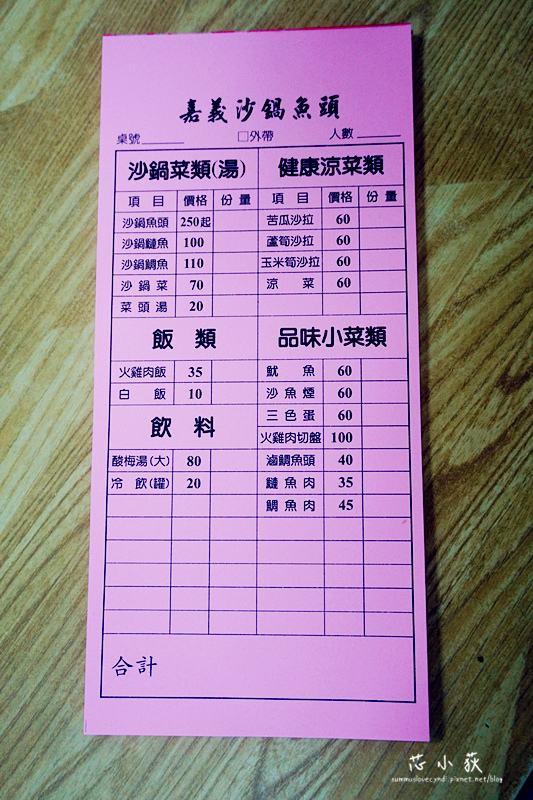 嘉義沙鍋魚頭
桌號 □外帶 人數
沙鍋菜類(湯)
項目 價格 份量
沙鍋魚頭 250起
沙鍋鰱魚 100
沙鍋鯛魚 110
沙鍋菜 70
菜頭湯 20
飯類
火雞肉飯 35
白飯 10
飲料
酸梅湯(大) 80
冷飲(罐) 20
健康涼菜類
項目 價格 份量
苦瓜沙拉 60
蘆筍沙拉 60
玉米筍沙拉 60
涼菜 60
品味小菜類
魷魚 60
沙魚煙 60
三色蛋 60
火雞肉切盤 100
滷鯛魚頭 40
鰱魚肉 35
鯛魚肉 45
合計
芯小荻
summuslovecyndi.pixnet.net/blog